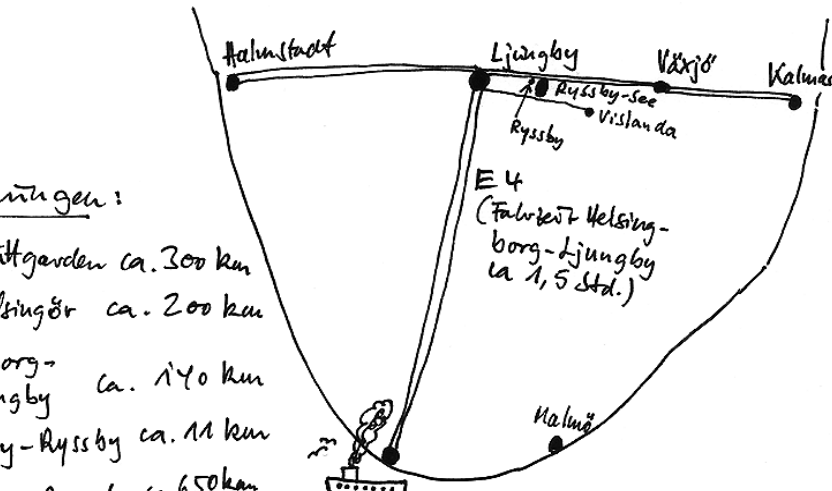 Halmstadt
Ljungby
Växjö
Kalmar
Ryssby-see
Vislanda
Ryssby
E4
(Fahrzeit Helsing-
borg-Ljungby
ca 1,5 Std.)
Malmö
ungen:
ttgarden ca. 300 km
lsingör ca. 200 km
org-
ngby ca. 140 km
y-Ryssby ca. 11 km
650 km